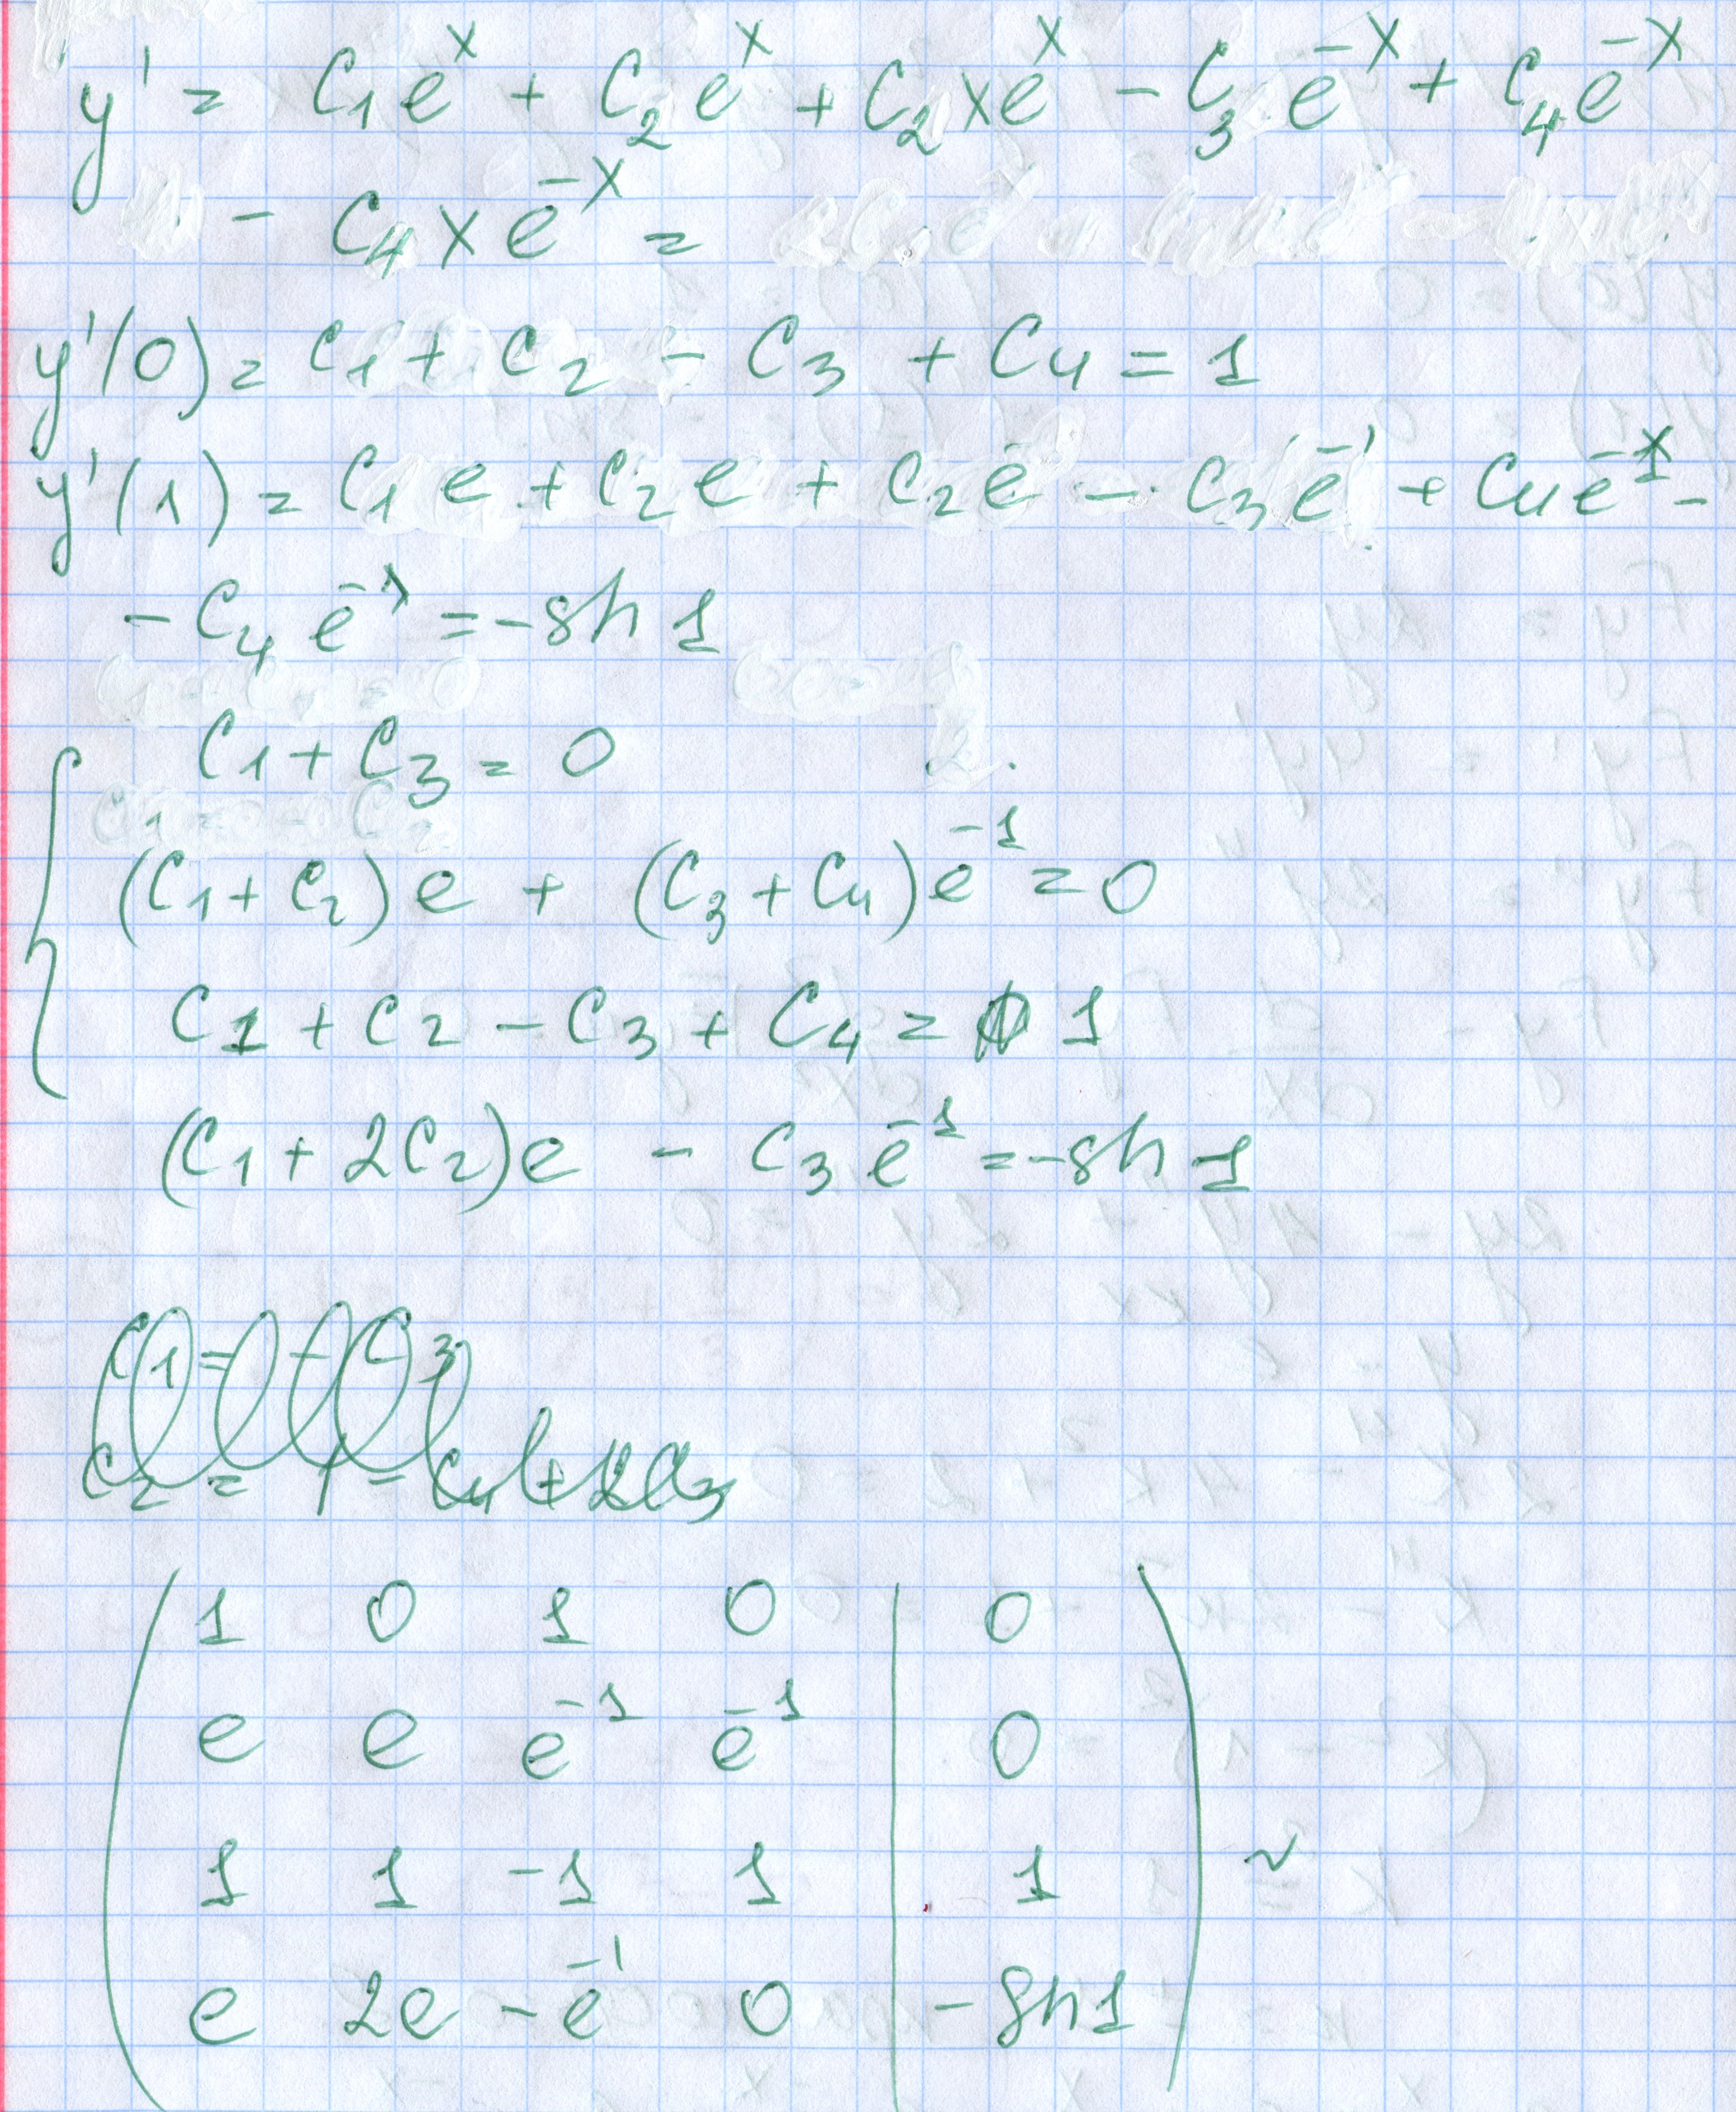 y' = C₁eˣ + C₂eˣ + C₂xeˣ − C₃e⁻ˣ + C₄e⁻ˣ
− C₄xe⁻ˣ =
y'(0) = C₁ + C₂ − C₃ + C₄ = 1
y'(1) = C₁e + C₂e + C₂e − C₃e⁻¹ + C₄e⁻¹ −
− C₄e⁻¹ = −sh 1
C₁ + C₃ = 0
(C₁ + C₂)e + (C₃ + C₄)e⁻¹ = 0
C₁ + C₂ − C₃ + C₄ = 1
(C₁ + 2C₂)e − C₃e⁻¹ = −sh 1
C₁ = − C₃
C₂ = 1 − C₄ + 2C₃
1 0 1 0 | 0
e e e⁻¹ e⁻¹ | 0
1 1 −1 1 | 1 ~
e 2e −e⁻¹ 0 | −sh1